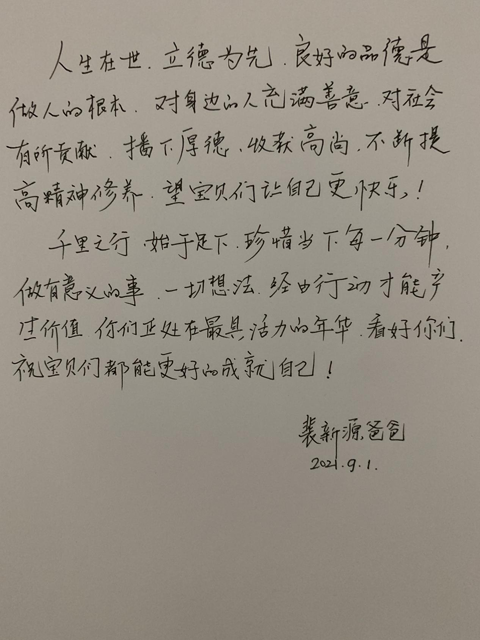 人生在世、立德为先、良好的品德是
做人的根本、对身边的人充满善意、对社会
有所贡献、播下厚德、收获高尚、不断提
高精神修养、望宝贝们让自己更快乐！
千里之行、始于足下、珍惜当下每一分钟，
做有意义的事、一切想法、经由行动才能产
生价值、你们正处在最具活力的年华、看好你们，
祝宝贝们都能更好的成就自己！
裴新源爸爸
2021.9.1.